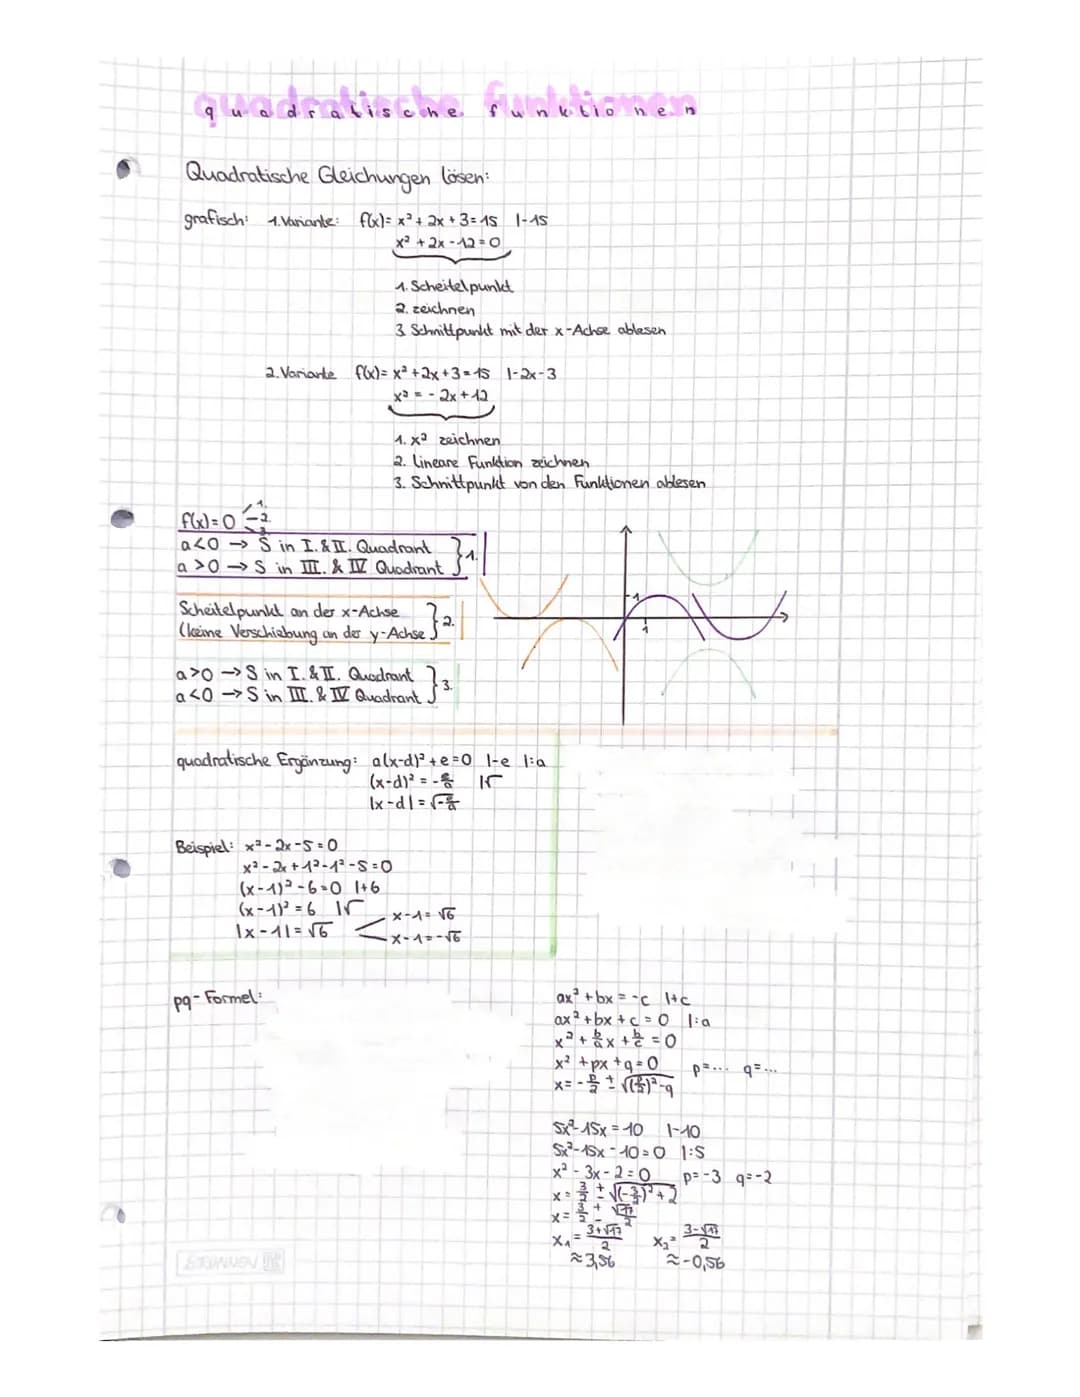 quadratische funktionen
Quadratische Gleichungen lösen:
grafisch: 1. Variante: f(x)= x² + 2x + 3 = 15 |-15
x² + 2x - 12 = 0
1. Scheitelpunkt
2. zeichnen
3. Schnittpunkt mit der x-Achse ablesen
2. Variante f(x)= x² + 2x + 3 = 15 |-2x-3
x² = - 2x + 12
1. x² zeichnen
2. lineare Funktion zeichnen
3. Schnittpunkt von den Funktionen ablesen
f(x) = 0 1. 2. 3.
a<0 → S in I. & II. Quadrant
a>0 → S in III. & IV Quadrant } 1.
Scheitelpunkt an der x-Achse
(keine Verschiebung an der y-Achse } 2.
a>0 → S in I. & II. Quadrant
a<0 → S in III. & IV Quadrant } 3.
1
1
quadratische Ergänzung: a(x-d)² + e = 0 |-e |:a
(x-d)² = -e/a |√
|x-d| = √-e/a
Beispiel: x² - 2x - 5 = 0
x² - 2x + 1² - 1² - 5 = 0
(x-1)² - 6 = 0 |+6
(x-1)² = 6 |√
|x-1| = √6
x-1 = √6
x-1 = -√6
pq-Formel:
ax² + bx = -c |+c
ax² + bx + c = 0 |:a
x² + b/a x + b/c = 0
x² + px + q = 0 p=... q=...
x = -p/2 ± √(p/2)²-q
5x² - 15x = 10 |-10
5x² - 15x - 10 = 0 |:5
x² - 3x - 2 = 0 p=-3 q=-2
x = 3/2 ± √(-3/2)² + 2
x = 3/2 ± √17/2
x₁ = 3+√17/2 x₂ = 3-√17/2
≈ 3,56 ≈ -0,56